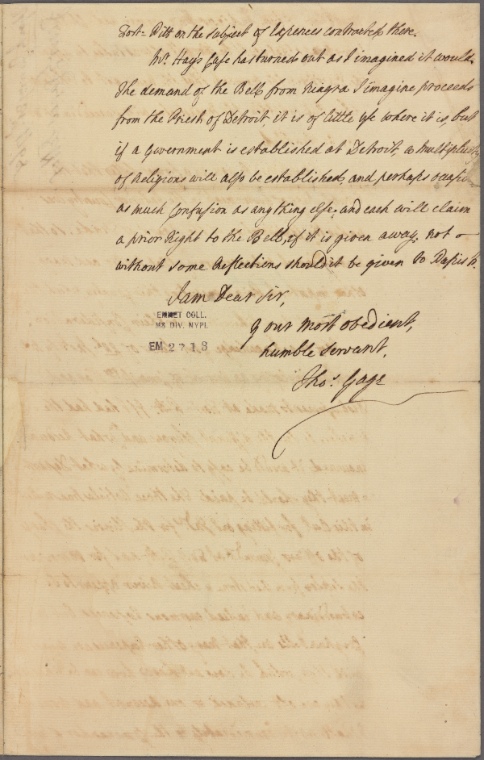 Fort-Pitt on the subject of Expences contracted there.
Mr. Hay's Case has turned out as I imagined it would.
The demand of the Bell from Niagra I imagine proceeds
from the Priest of Detroit it is of little Use where it is, but
if a Government is established at Detroit, a multiplicity
of Religions will also be established, and perhaps occasion
as much Confusion as any thing else, and each will claim
a prior Right to the Bell, if it is given away, not
without some Reflections should it be given to Papists.
I am Dear Sir,
EMMET COLL.
MS DIV. NYPL
EM 2713
your most obedient,
humble Servant,
Thos. Gage